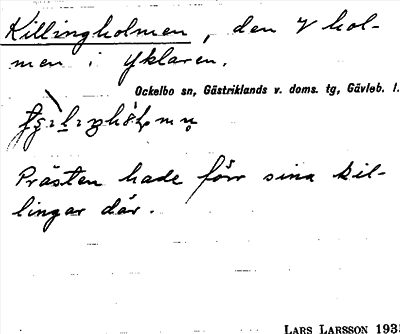 Killingholmen, den V hol-
men i Yklaren.
Ockelbo sn, Gästriklands v. doms. tg, Gävleb. l.
Prästen hade förr sina kil-
lingar där.
LARS LARSSON 193